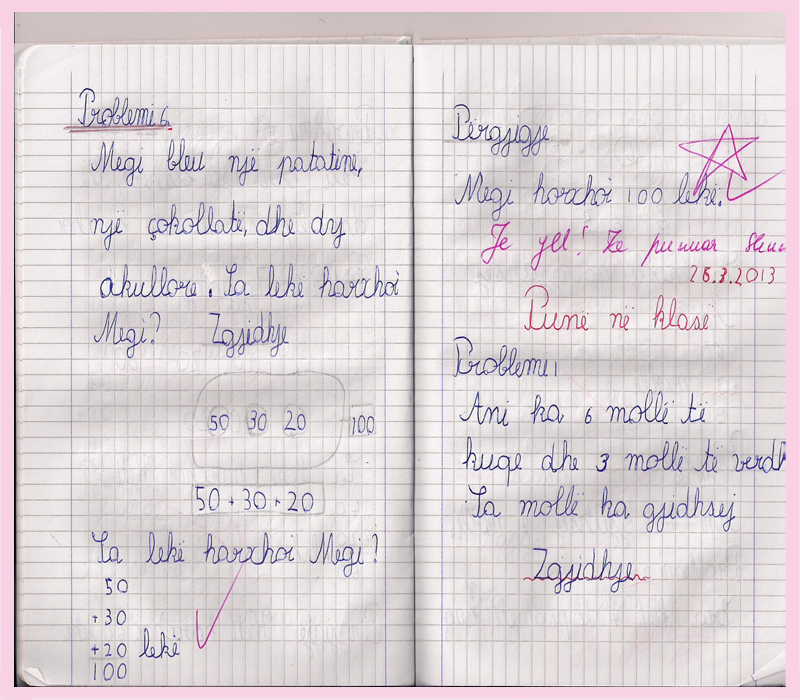 Problemi 6
Megi bleu një patatine,
një çokollatë, dhe dy
akullore. Sa lekë harxhoi
Megi? Zgjidhje
50 30 20 100
50 + 30 + 20
Sa lekë harxhoi Megi?
50
+30
+20 lekë
100
Përgjigje
Megi harxhoi 100 lekë.
Je yll! Ke punuar
26.3.2013
Punë në klasë
Problemi 1
Ani ka 6 mollë të
kuqe dhe 3 mollë të verdh
Sa mollë ka gjidhsej
Zgjidhje